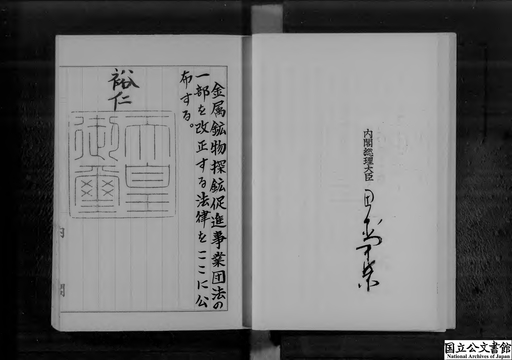 金属鉱物探鉱促進事業団法の
一部を改正する法律をここに公
布する。
裕仁
天皇
御璽
内閣総理大臣
国立公文書館
National Archives of Japan